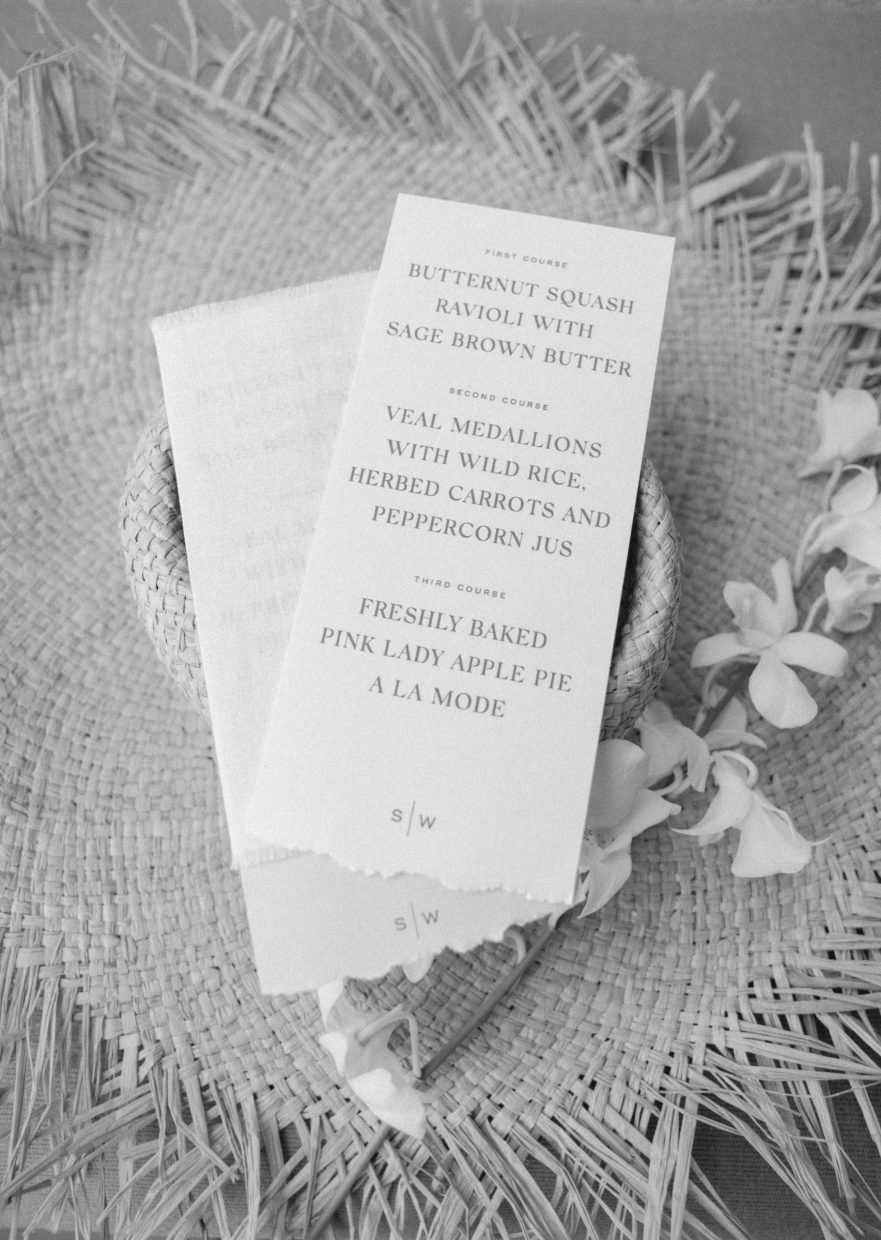 FIRST COURSE
BUTTERNUT SQUASH
RAVIOLI WITH
SAGE BROWN BUTTER
SECOND COURSE
VEAL MEDALLIONS
WITH WILD RICE,
HERBED CARROTS AND
PEPPERCORN JUS
THIRD COURSE
FRESHLY BAKED
PINK LADY APPLE PIE
A LA MODE
S|W
S|W